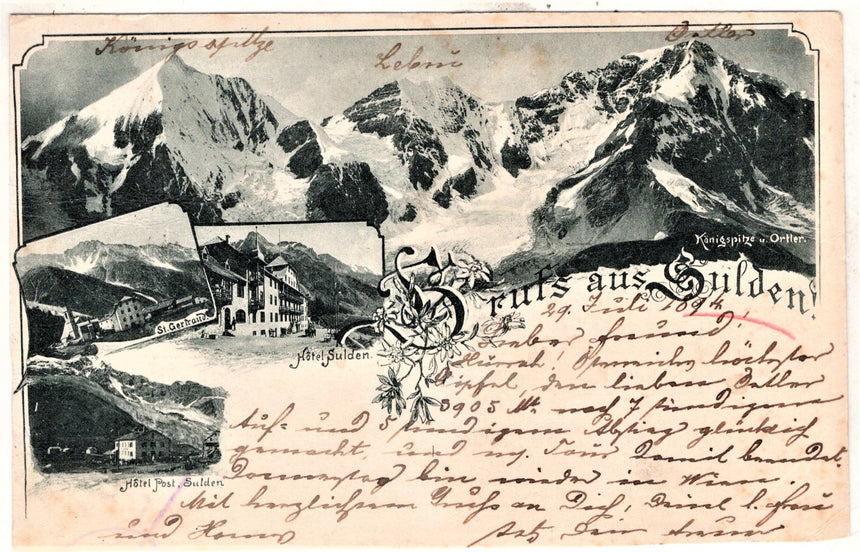 Königsspitze
Ortler
Königspitze u. Ortler.
Gruss aus Sulden!
St. Gertraud.
Hôtel Sulden.
Hôtel Post, Sulden
29. Juli 1894!
Lieber Freund!
Hurrah! Österreichs höchster
Gipfel, den lieben Ortler
3905 Mt. nach 7 stündigem
Auf- und 5 stündigem Abstieg glücklich
gemacht, und m. Tour damit beendet.
Donnerstag bin wieder in Wien.
Mit herzlichstem Gruss an Dich, Deine l. Frau
und
stets Dein treuer